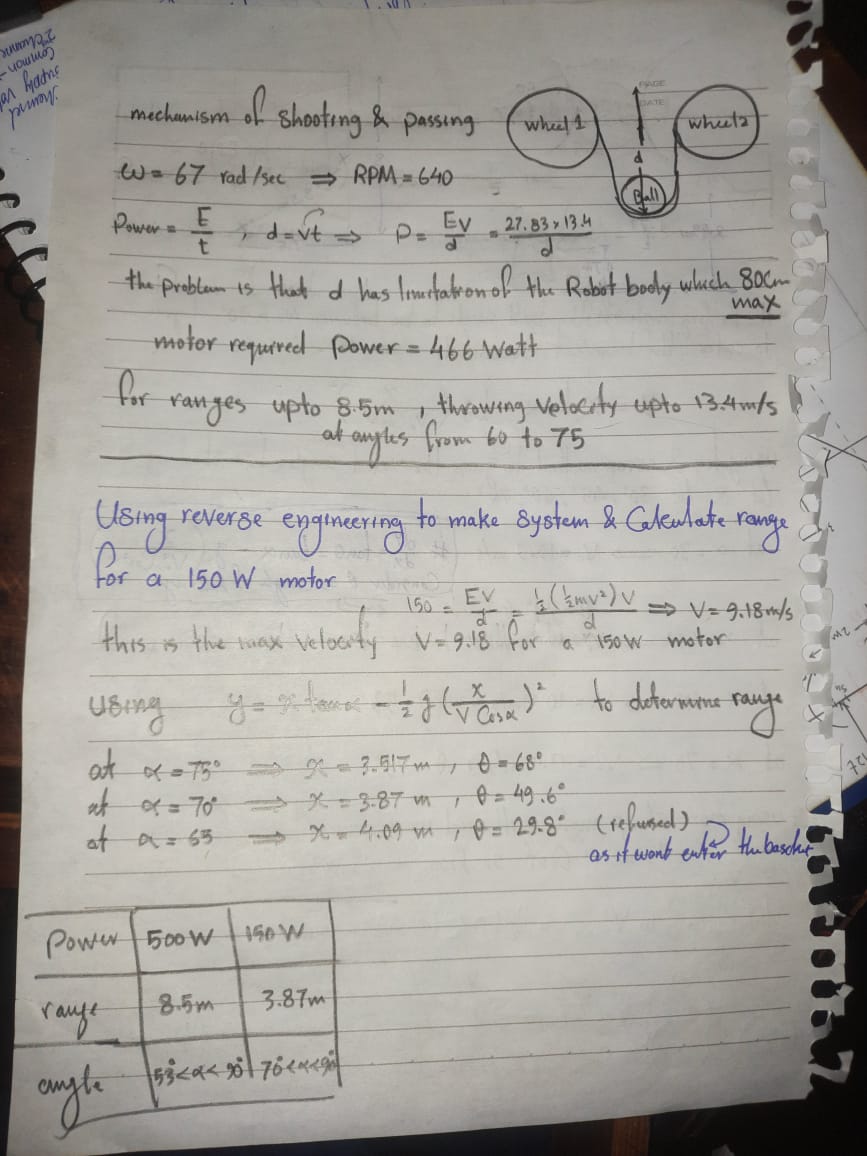 PAGE
DATE
mechanism of Shooting & passing
wheel 1
wheel 2
d
Ball
ω = 67 rad/sec ⇒ RPM = 640
Power = E/t , d = vt ⇒ P = EV/d = 27.83 x 13.4/d
the problem is that d has limitation of the Robot body which 80cm
max
motor required Power = 466 Watt
for ranges upto 8.5m , throwing velocity upto 13.4 m/s
at angles from 60 to 75
Using reverse engineering to make system & Calculate range
for a 150 W motor
150 = EV/d = ½(½mv²)V/d ⇒ V = 9.18 m/s
this is the max velocity V = 9.18 for a 150W motor
using y = x tanα - ½ g (x/V Cosα)² to determine range
at α = 75° ⇒ x = 3.517 m , θ = 68°
at α = 70° ⇒ x = 3.87 m , θ = 49.6°
at α = 65 ⇒ x = 4.09 m , θ = 29.8° (refused)
as it wont enter the
Power 500W 150 W
range 8.5m 3.87m
angle 53°<α<90° 70°<α<90°
supply
Common